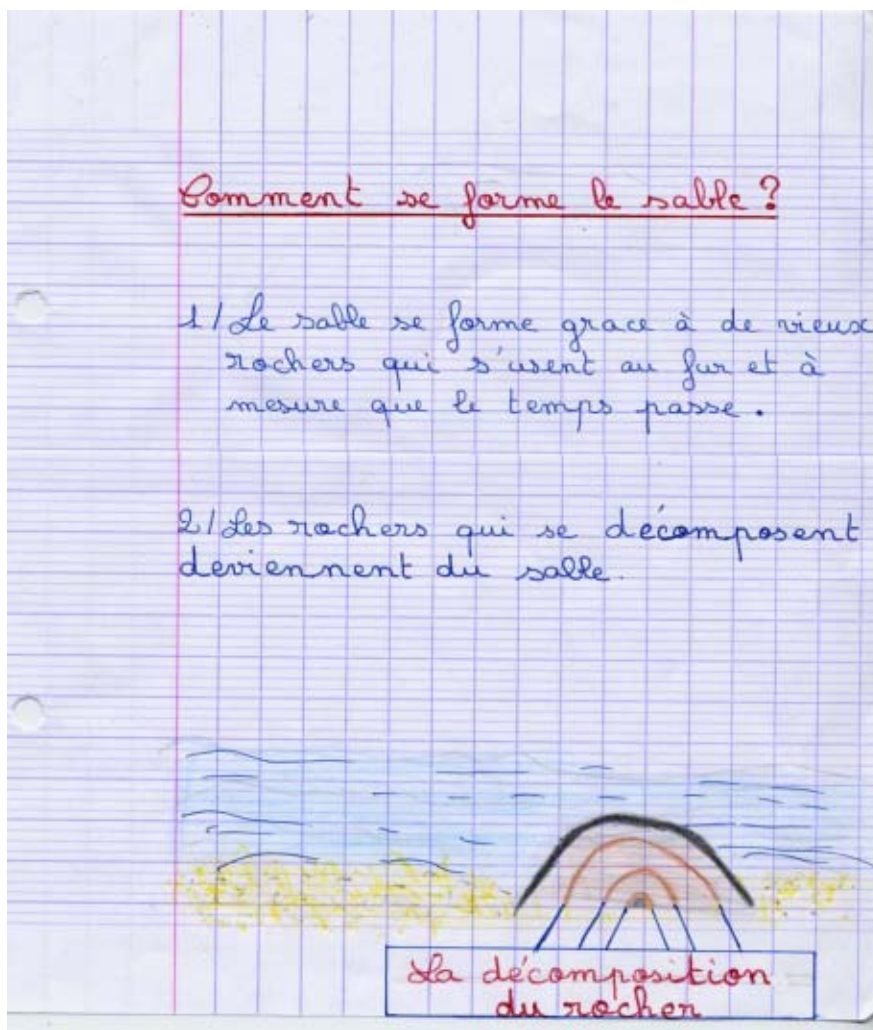 Comment se forme le sable ?
1/ Le sable se forme grace à de vieux
rochers qui s'usent au fur et à
mesure que le temps passe.
2/ Les rochers qui se décomposent
deviennent du sable.
La décomposition
du rocher